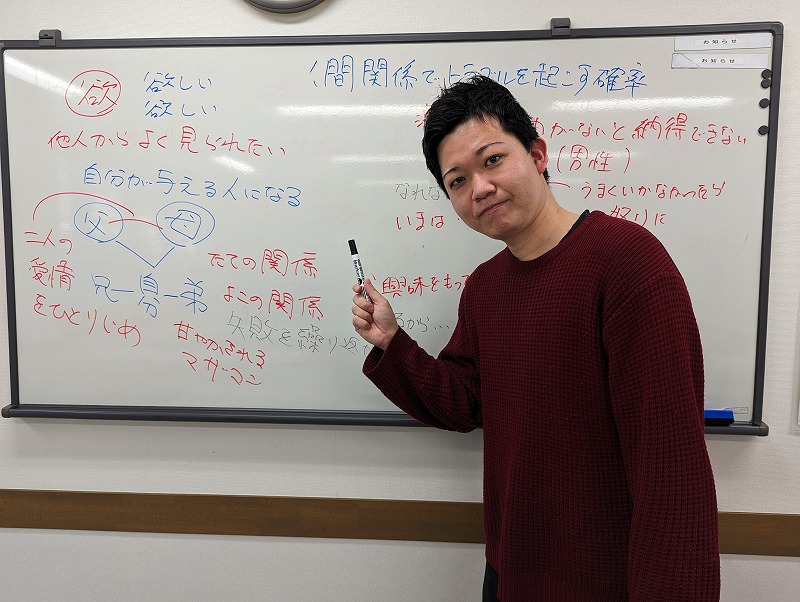 お知らせ
お知らせ
欲 欲しい
欲しい
他人からよく見られたい
自分が与える人になる
父 母
二人の
愛情
をひとりじめ
兄－自分－弟
たての関係
よこの関係
甘やかされる
マザーマン
失敗を繰り返
るから…
間関係でトラブルを起こす確率
がないと納得できない
(男性)
なれな
うまくいかなかったら
いまは
怒りに
興味をもっ